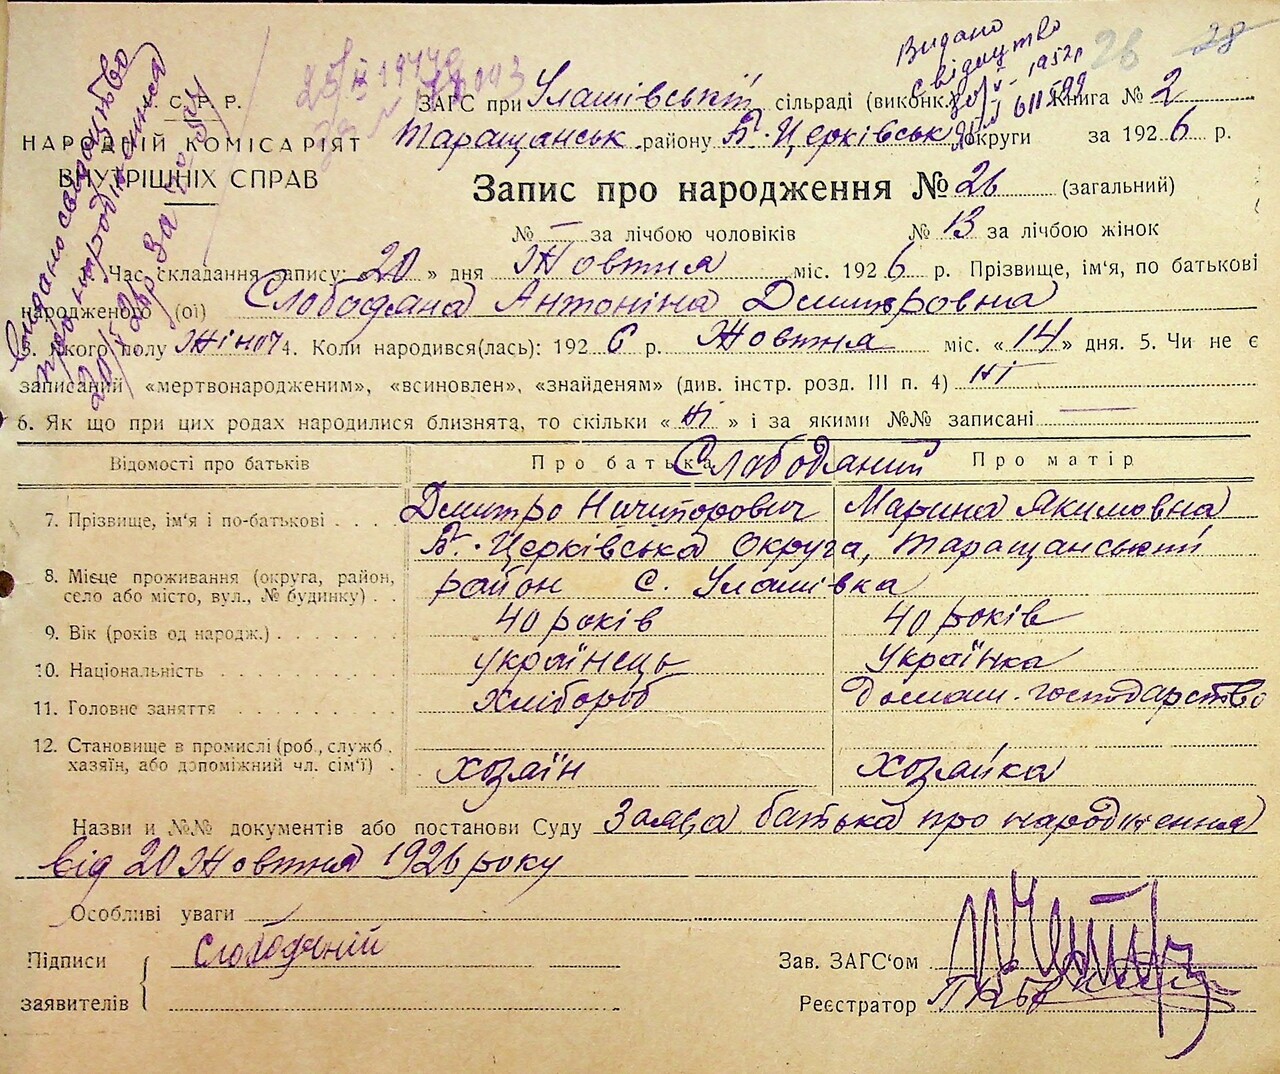 Видано
свідоцтво
26 28
С. Р. Р.
ЗАГС при Улашівській сільраді (виконк. Книга № 2
НАРОДНІЙ КОМІСАРІЯТ
Таращанськ району Б.-Церківськ округи за 1926 р.
ВНУТРІШНІХ СПРАВ
Запис про народження № 26 (загальний)
№ — за лічбою чоловіків № 13 за лічбою жінок
Час складання запису: „20" дня Жовтня міс. 1926 р. Прізвище, ім'я, по батькові
народженого (ої) Слободяна Антоніна Дмитровна
3. Якого полу Жіноч 4. Коли народився(лась): 1926 р. Жовтня міс. «14» дня. 5. Чи не є
записаний «мертвонародженим», «всиновлен», «знайденям» (див. інстр. розд. III п. 4) Ні
6. Як що при цих родах народилися близнята, то скільки « Ні » і за якими №№ записані —
Відомості про батьків Про батька Слободяний Про матір
7. Прізвище, ім'я і по-батькові Дмитро Ничипорович Марина Якимовна
Б.-Церківська Округа, Таращанський
8. Місце проживання (округа, район, район С. Улашівка
село або місто, вул., № будинку)
9. Вік (років од народж.) 40 років 40 років
10. Національність Українець Українка
11. Головне заняття Хлібороб Домаш. господарство
12. Становище в промислі (роб., служб.
хазяїн, або допоміжний чл. сім'ї) хозяїн хозяйка
Назви и №№ документів або постанови Суду Заява батька про народження
від 20 Жовтня 1926 року
Особливі уваги
Підписи Слободяний Зав. ЗАГС'ом
заявителів Реєстратор